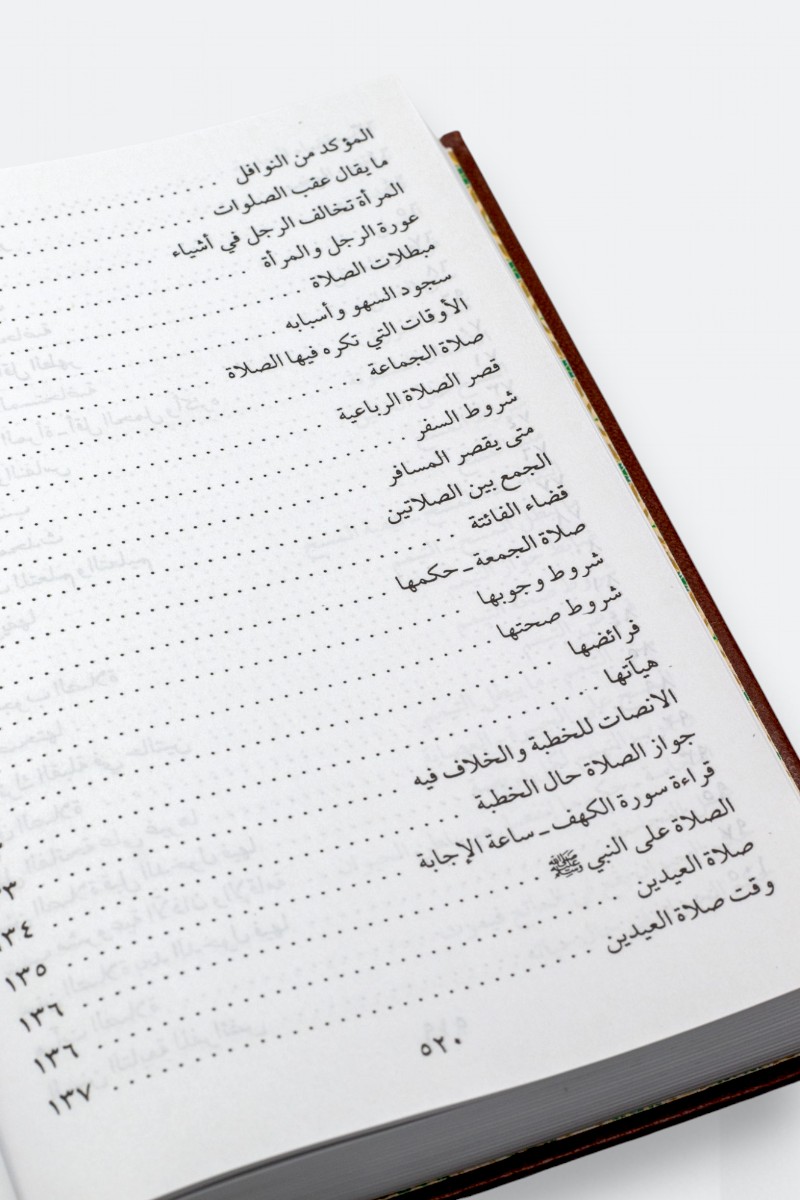 المؤكد من النوافل
ما يقال عقب الصلوات
المرأة تخالف الرجل في أشياء
عورة الرجل والمرأة
مبطلات الصلاة
سجود السهو وأسبابه
الأوقات التي تكره فيها الصلاة
صلاة الجماعة
قصر الصلاة الرباعية
شروط السفر
متى يقصر المسافر
الجمع بين الصلاتين
قضاء الفائتة
صلاة الجمعة ـ حكمها
شروط وجوبها
شروط صحتها
فرائضها
هيآتها
الانصات للخطبة والخلاف فيه
جواز الصلاة حال الخطبة ١٣٤
قراءة سورة الكهف ـ ساعة الإجابة ١٣٥
الصلاة على النبي ﷺ ١٣٦
صلاة العيدين ١٣٦
وقت صلاة العيدين ١٣٧
٥٢٠